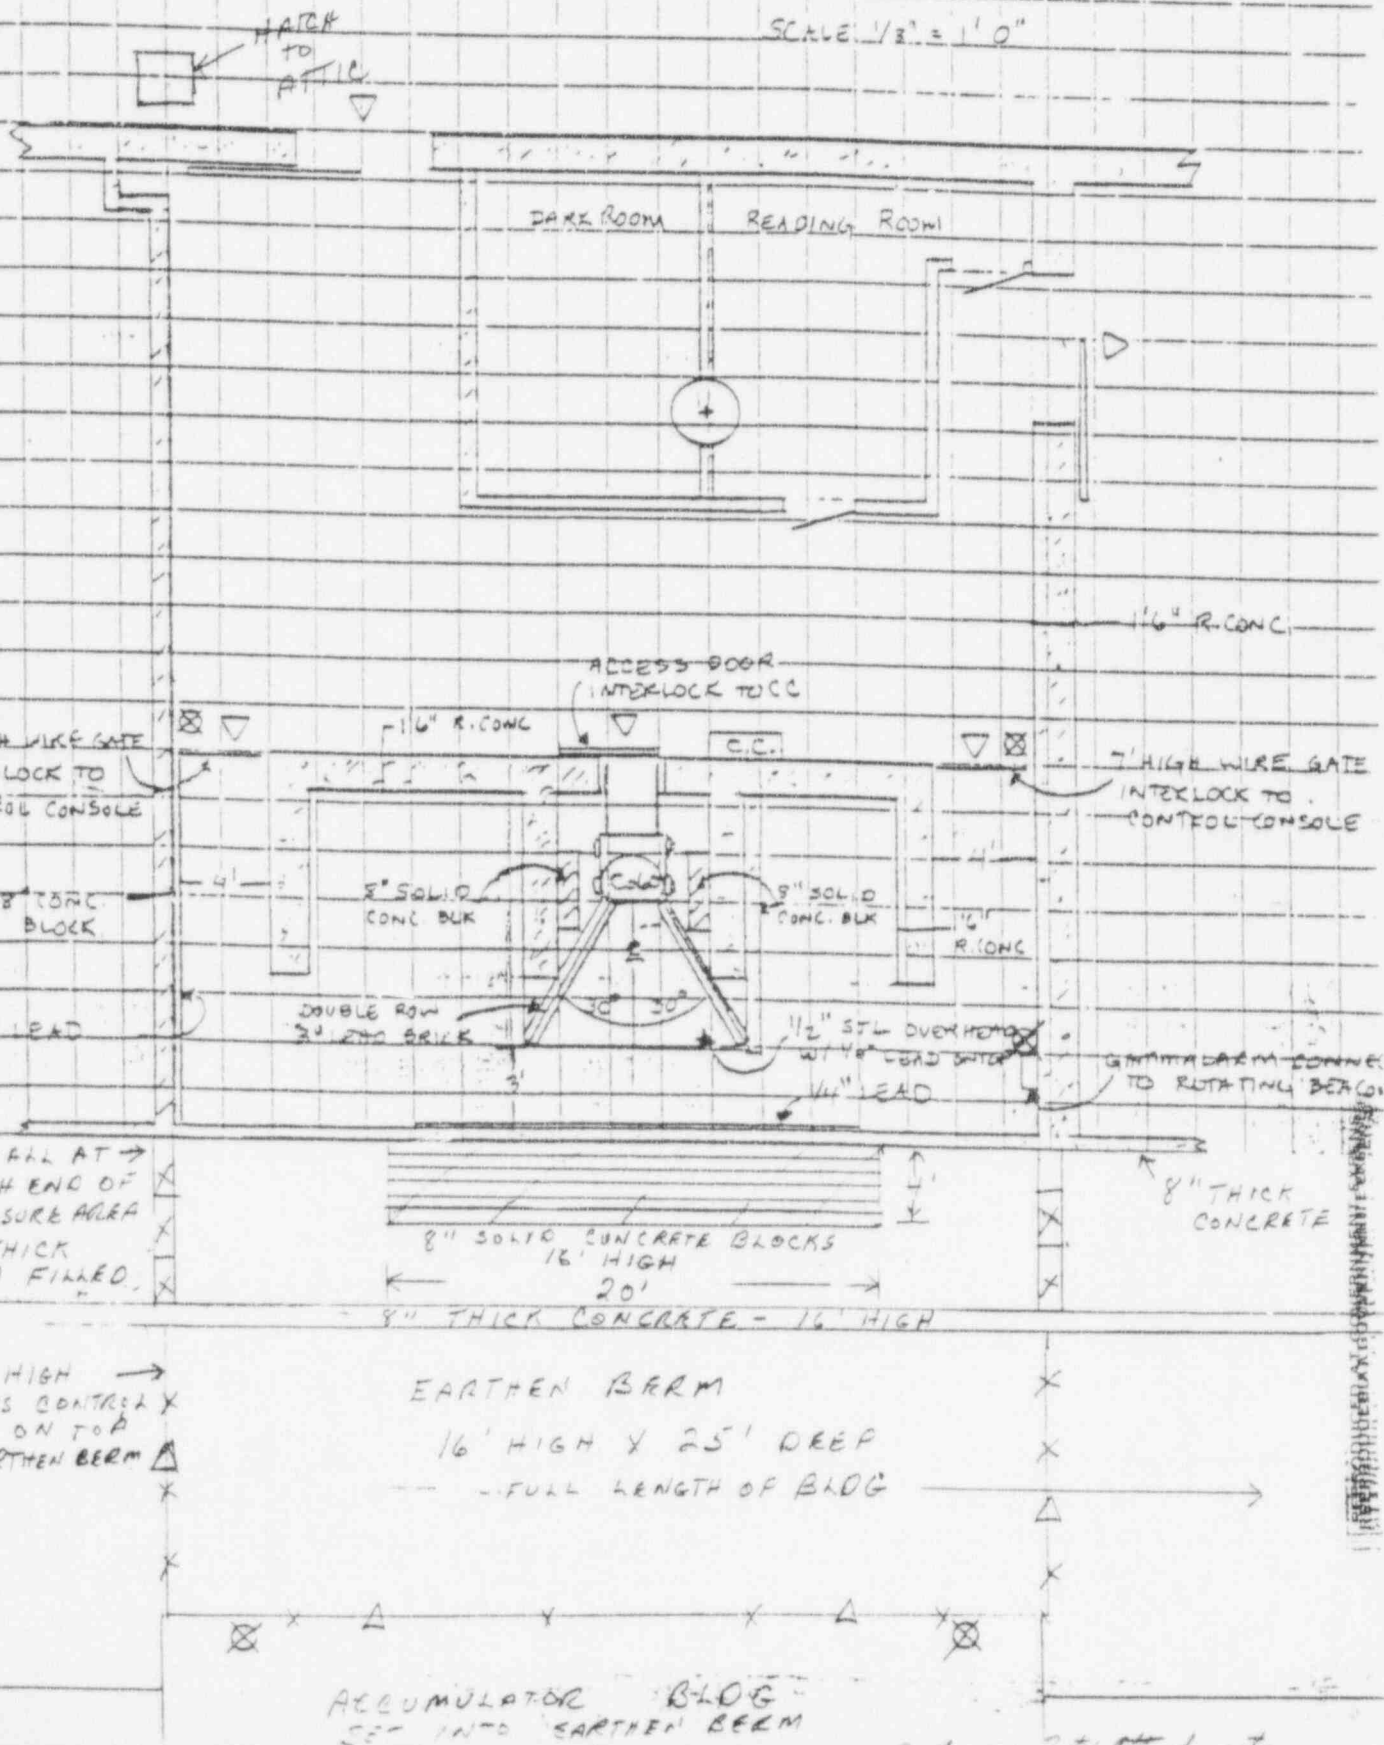 HATCH
TO
ATTIC
SCALE 1/8" = 1' 0"
DARK ROOM
READING ROOM
1'6" R. CONC.
ACCESS DOOR
INTERLOCK TO CC
1'6" R. CONC
C.C.
WIRE GATE
LOCK TO
CONSOLE
7' HIGH WIRE GATE
INTERLOCK TO
CONTROL CONSOLE
4'
4'
8" CONC.
BLOCK
8" SOLID
CONC. BLK
Co60
8" SOLID
CONC. BLK
R. CONC
LEAD
DOUBLE ROW
3" LEAD BRICK
30° 30°
1/2" STL OVERHEAD
LEAD
3'
1/4" LEAD
TO ROTATING BEACON
ALL AT →
END OF
SURE AREA
THICK
FILLED
8" THICK
CONCRETE
8" SOLID CONCRETE BLOCKS
16' HIGH
20'
8" THICK CONCRETE - 16' HIGH
HIGH →
S CONTROL
ON TOP
RTHEN BERM
EARTHEN BERM
16' HIGH X 25' DEEP
FULL LENGTH OF BLDG
ACCUMULATOR BLDG
SET INTO EARTHEN BERM